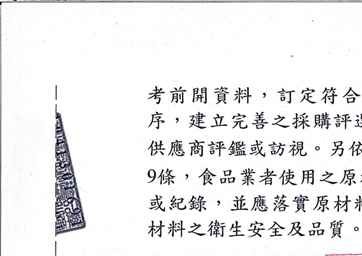 考前開資料，訂定符合
序，建立完善之採購評
供應商評鑑或訪視。另依
9條，食品業者使用之原
或紀錄，並應落實原材料
材料之衛生安全及品質。